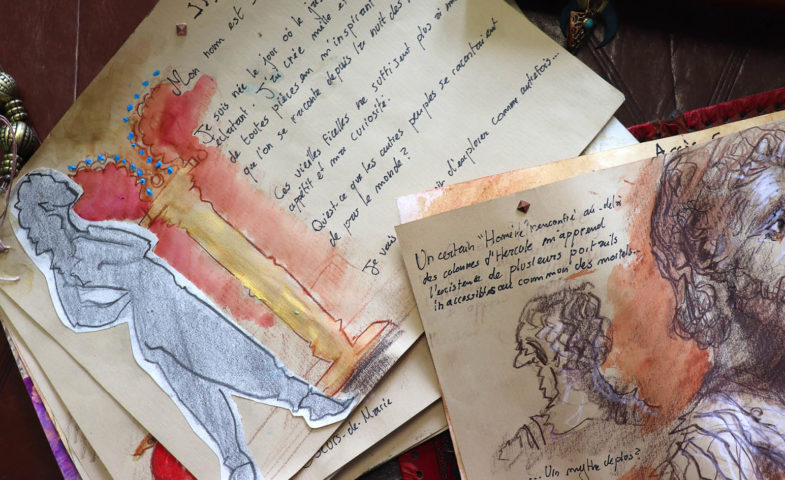 Mon nom est
Je suis née le jour où le
éclatant. J'ai créé mille et
de toutes pièces en m'inspirant
que l'on se raconte depuis la nuit des
Ces vieilles ficelles ne suffisent plus à m
appétit et ma curiosité.
Qu'est-ce que les autres peuples se racontaient
de par le monde?
Je vais d'explorer comme autrefois...
de-Marie
Un certain "Homère" rencontré au-delà
des colonnes d'Hercule m'apprend
l'existence de plusieurs portraits
inaccessibles au commun des mortels...
... Un mythe de plus?